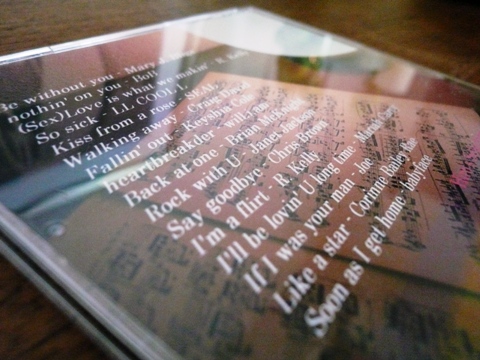 Be without you - Mary
nothin' on you - BoB
(Sex)Love is what we makin' - R.
So sick - LL COOL J
Kiss from a rose - SEAL
Walking away - Craig David
Fallin' out - Keyshia Cole
heartbreakder - will.i.am
Back at one - Brian McKnight
Rock with U - Janet Jackson
Say goodbye - Chris Brown
I'm a flirt - R. Kelly
I'll be lovin' U long time - Mariah Carey
If I was your man - Joe
Like a star - Corinne Bailey Rae
Soon as I get home - babyface